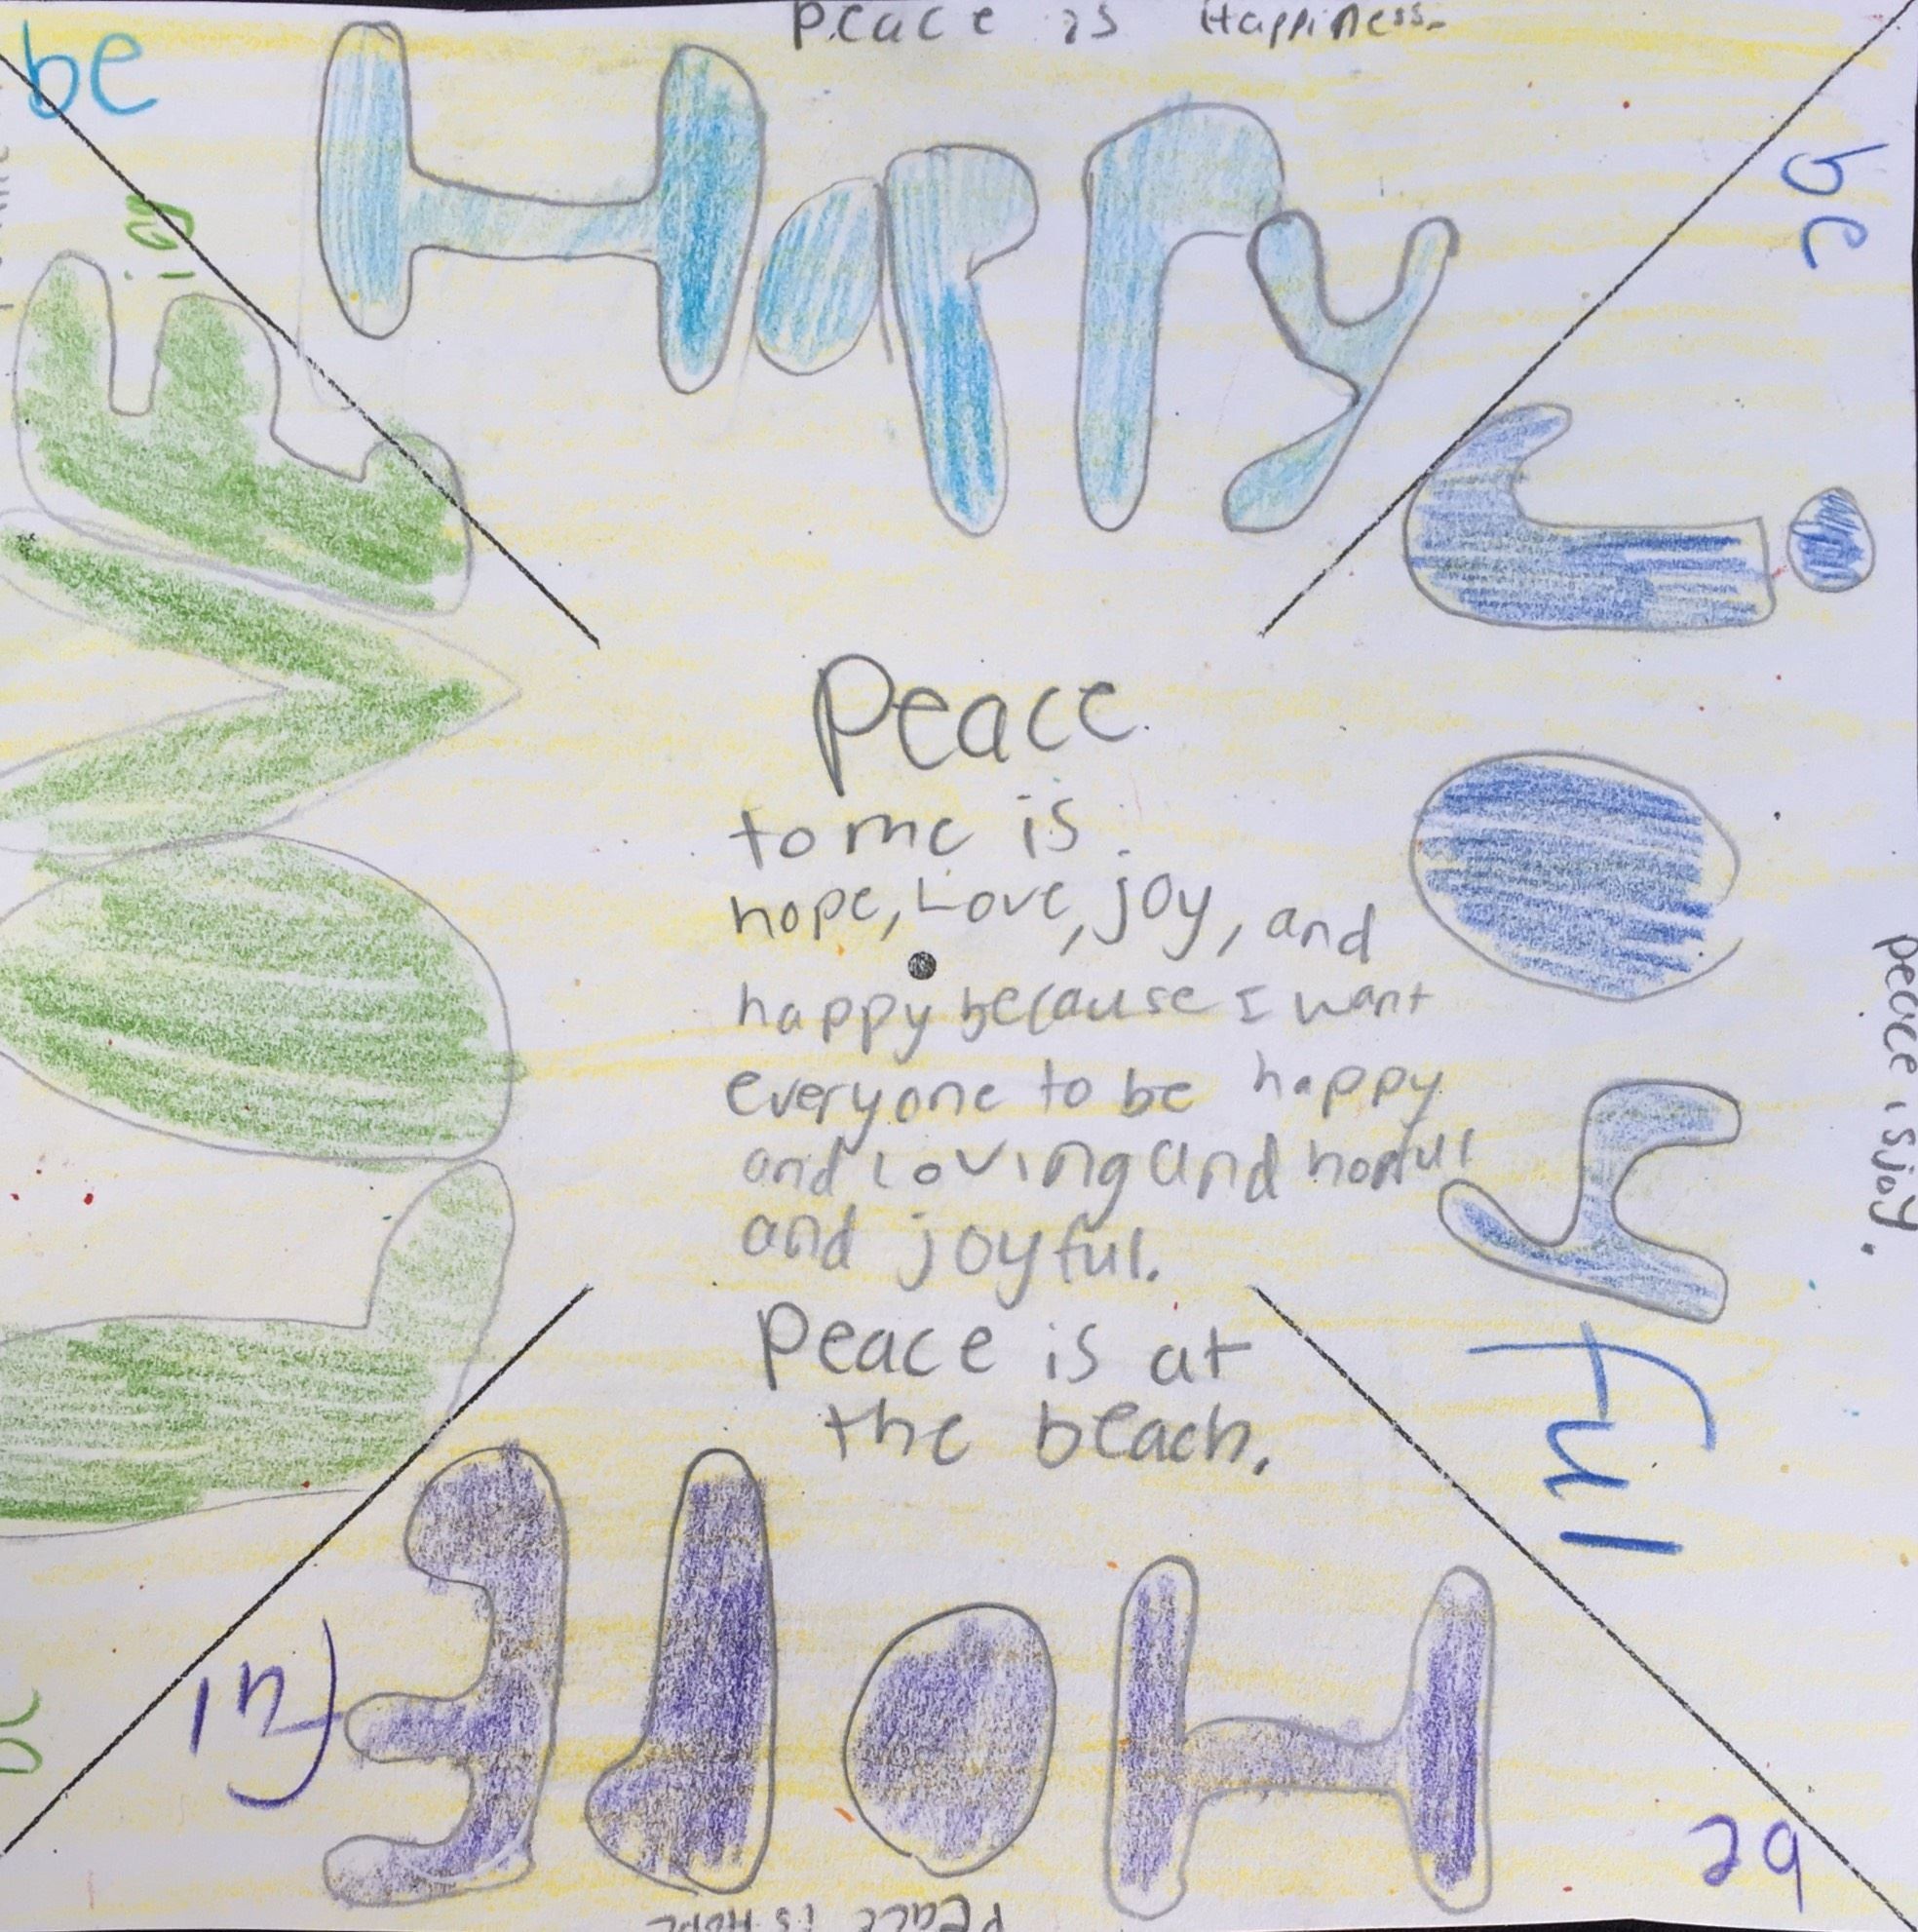 Peace is Happiness.
be
Happy
be
joy
ful
peace is joy.
Peace
to me is
hope, Love, joy, and
happy because I want
everyone to be happy
and loving and hopful
and joyful.
Peace is at
the beach.
be
HOPE
ful
Peace is Hope
be
LOVE